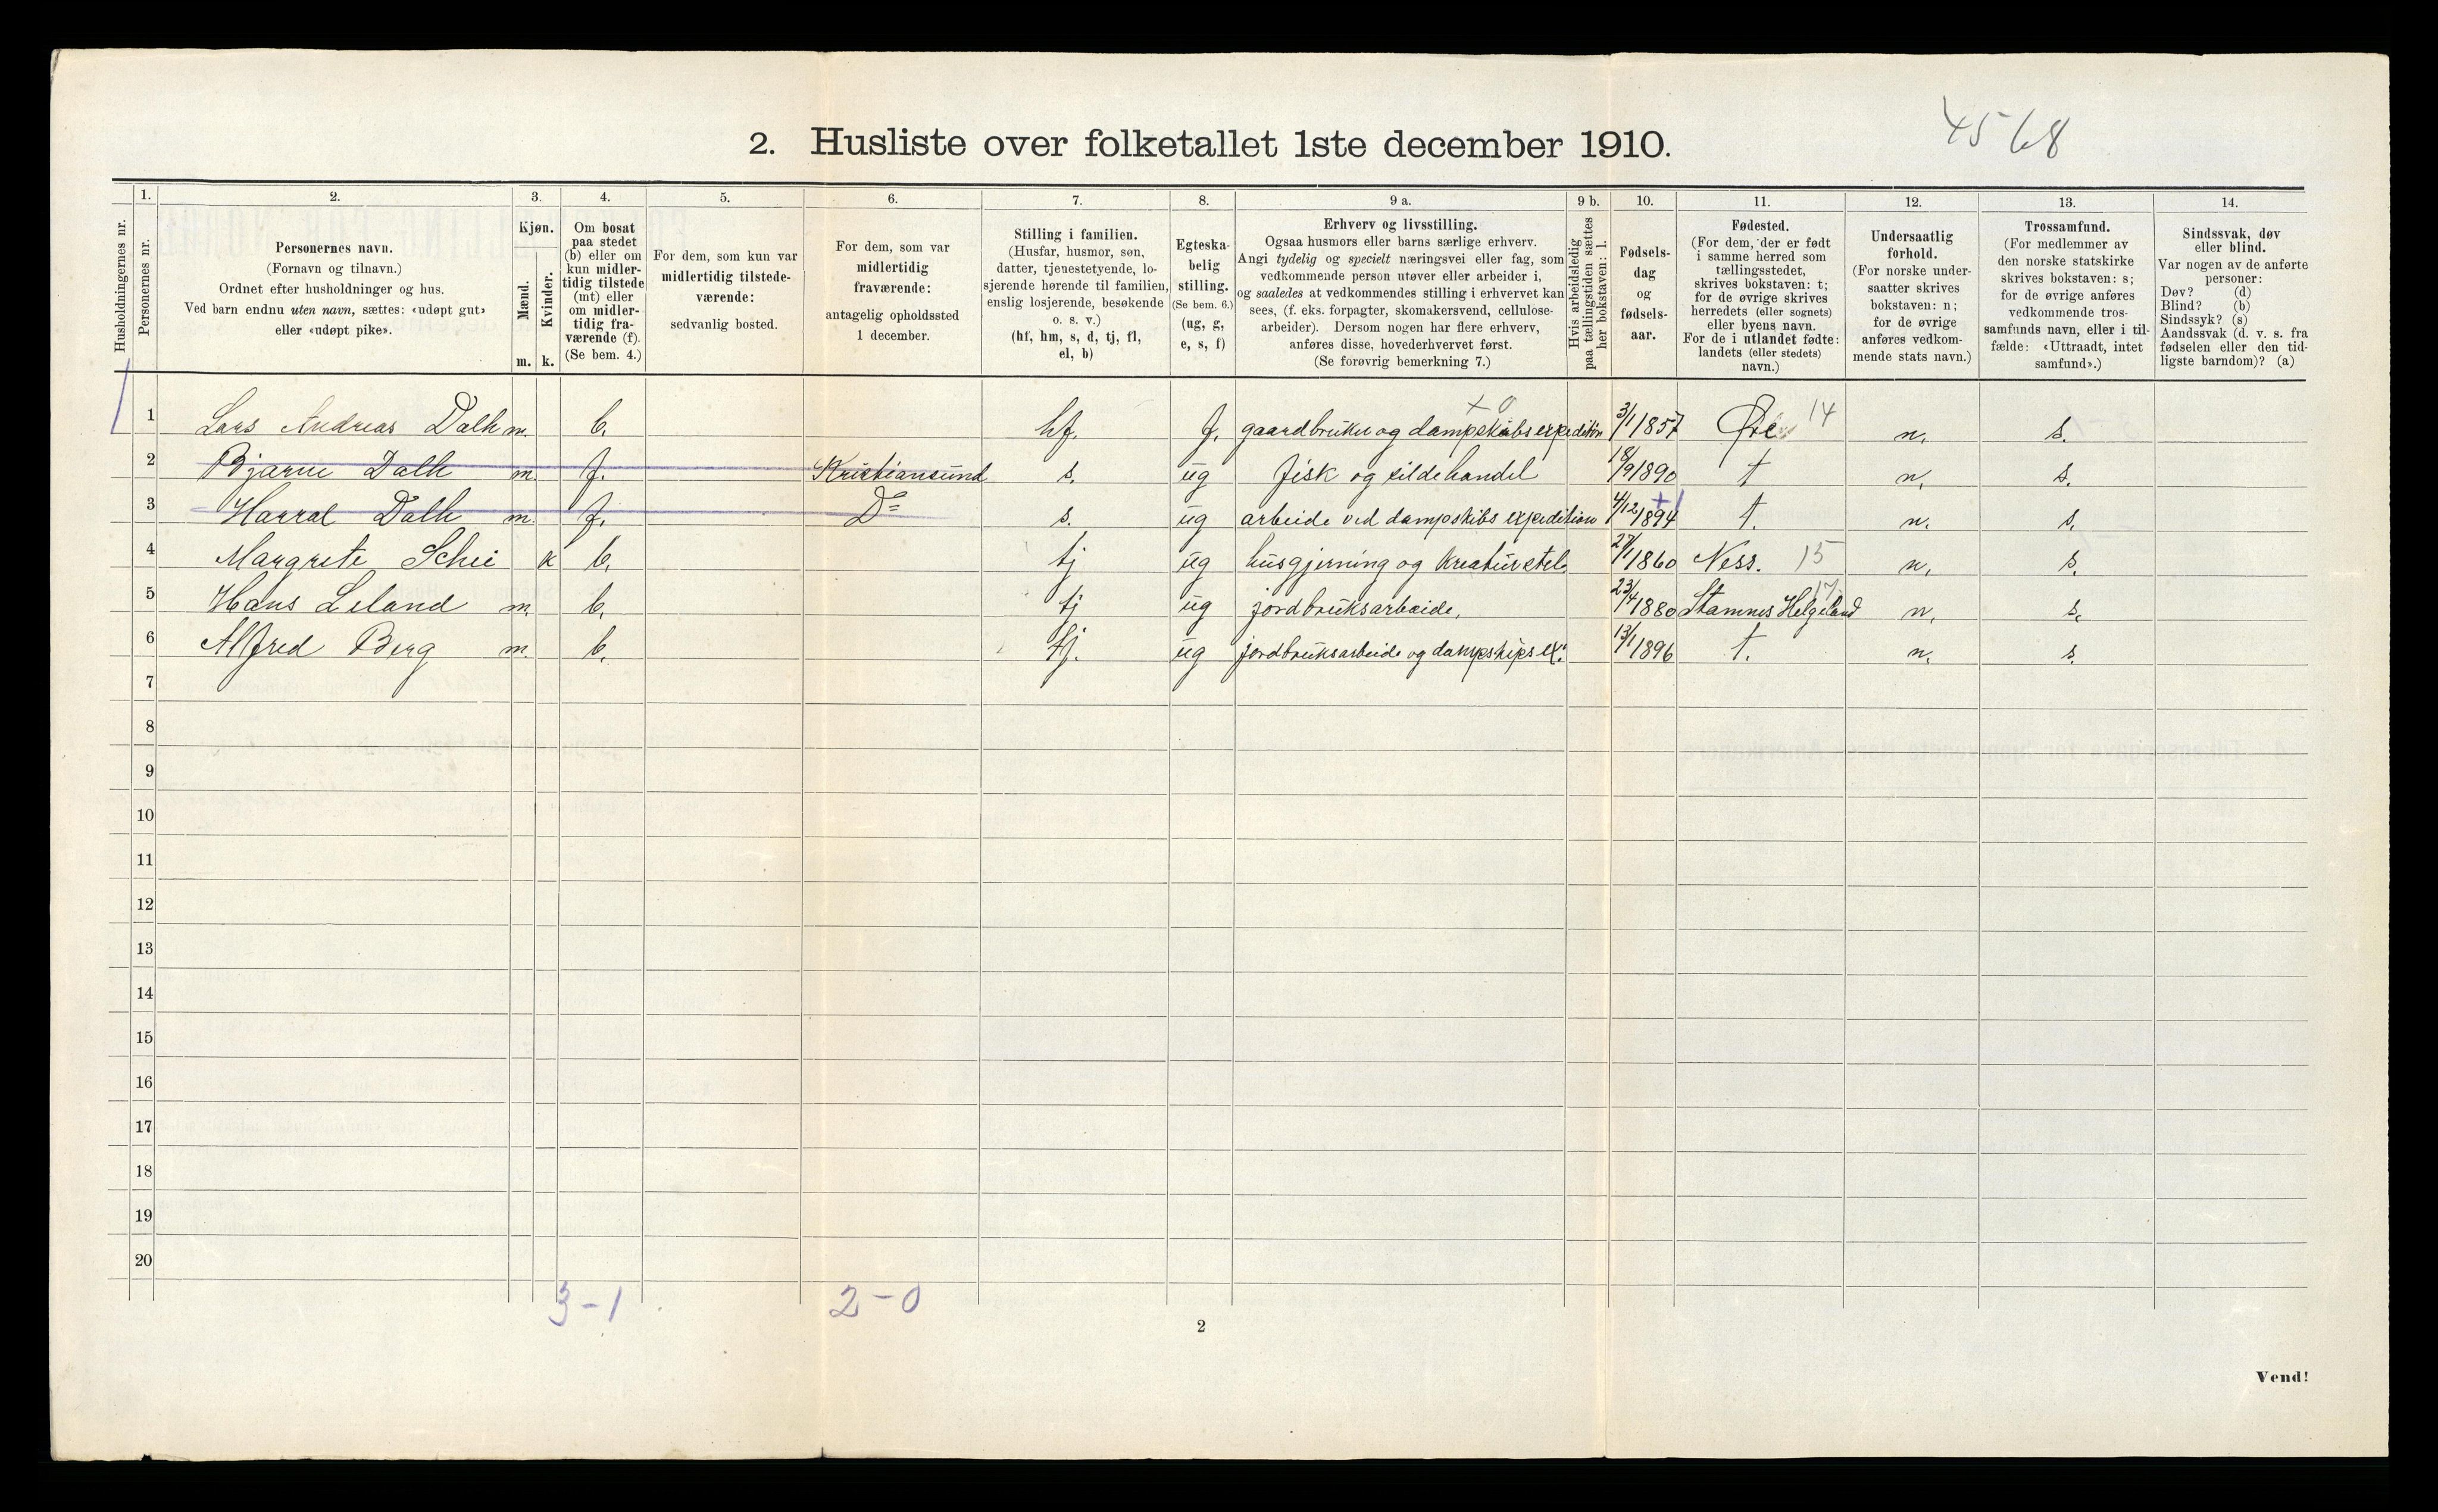 4568
2. Husliste over folketallet 1ste december 1910.
Husholdningernes nr.
1.
Personernes nr.
2.
Personernes navn.
(Fornavn og tilnavn.)
Ordnet efter husholdninger og hus.
Ved barn endnu uten navn, sættes: «udøpt gut»
eller «udøpt pike».
3.
Kjøn.
Mænd.
Kvinder.
m. k.
4.
Om bosat
paa stedet
(b) eller om
kun midler-
tidig tilstede
(mt) eller
om midler-
tidig fra-
værende (f).
(Se bem. 4.)
5.
For dem, som kun var
midlertidig tilstede-
værende:
sedvanlig bosted.
6.
For dem, som var
midlertidig
fraværende:
antagelig opholdssted
1 december.
7.
Stilling i familien.
(Husfar, husmor, søn,
datter, tjenestetyende, lo-
sjerende hørende til familien,
enslig losjerende, besøkende
o. s. v.)
(hf, hm, s, d, tj, fl,
el, b)
8.
Egteska-
belig
stilling.
(Se bem. 6.)
(ug, g,
e, s, f)
9 a.
Erhverv og livsstilling.
Ogsaa husmors eller barns særlige erhverv.
Angi tydelig og specielt næringsvei eller fag, som
vedkommende person utøver eller arbeider i,
og saaledes at vedkommendes stilling i erhvervet kan
sees, (f. eks. forpagter, skomakersvend, cellulose-
arbeider). Dersom nogen har flere erhverv,
anføres disse, hovederhvervet først.
(Se forøvrig bemerkning 7.)
9 b.
Hvis arbeidsledig
paa tællingstiden sættes
her bokstaven: l.
10.
Fødsels-
dag
og
fødsels-
aar.
11.
Fødested.
(For dem, der er født
i samme herred som
tællingsstedet,
skrives bokstaven: t;
for de øvrige skrives
herredets (eller sognets)
eller byens navn.
For de i utlandet fødte:
landets (eller stedets)
navn.)
12.
Undersaatlig
forhold.
(For norske under-
saatter skrives
bokstaven: n;
for de øvrige
anføres vedkom-
mende stats navn.)
13.
Trossamfund.
(For medlemmer av
den norske statskirke
skrives bokstaven: s;
for de øvrige anføres
vedkommende tros-
samfunds navn, eller i til-
fælde: «Uttraadt, intet
samfund».)
14.
Sindssvak, døv
eller blind.
Var nogen av de anførte
personer:
Døv? (d)
Blind? (b)
Sindssyk? (s)
Aandssvak (d. v. s. fra
fødselen eller den tid-
ligste barndom)? (a)
1 Lars Andreas Dalh m. b. hf. f. gaardbruker og dampskibsexpeditør 3/1 1857 Øre 14 n. s.
2 Bjarne Dalh m. f. Kristiansund s. ug fisk og sildehandel 18/9 1890 t n. s.
3 Harral Dalh m. f. Do s. ug arbeide ved dampskibs expedition 4/12 1894 t. n. s.
4 Margrete Schei k b. tj ug husgjerning og kreaturstel. 27/1 1860 Ness. 15 n. s.
5 Hans Leland m. b. tj ug jordbruksarbeide. 23/4 1880 Stamnes Helgeland 17 n. s.
6 Alfred Berg m. b. tj. ug jordbruksarbeide og dampskips ex. 13/1 1896 t. n. s.
7
8
9
10
11
12
13
14
15
16
17
18
19
20
3-1 2-0
2
Vend!